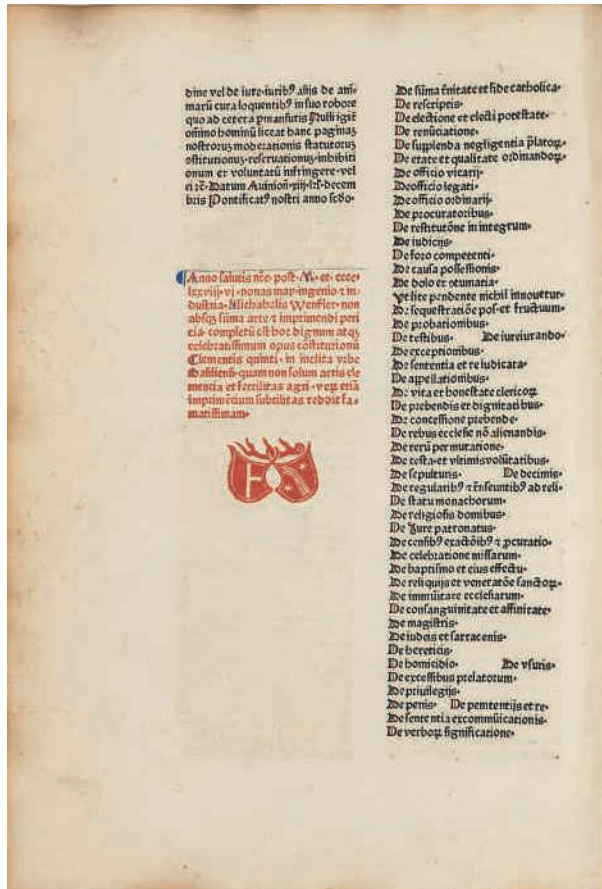 dine vel de iure·iuribꝰ alijs de ani-
marū cura loquentibꝰ in suo robore
quo ad cetera ꝑmansuris Nulli igit̄
om̄ino hominū liceat hanc paginaꝫ
nostroruꝫ moderationis statutoruꝫ
ꝯstitutionuꝫ·reseruationuꝫ·inhibiti
onum et voluntatū infringere·vel
ei rc̄· Datum Auinion̄·xiij·kl̄·decem
bris Pontificatꝰ nostri anno scd̄o·
Anno salutis nr̄e·post·M·et·cccc
lxxviij·vi·nonas may·ingenio ⁊ in
dustria·Michahelis Wenßler·non
absqꝫ sūma arte ⁊ imprimendi peri
tia·completū est hoc dignum atqꝫ
celebratissimum opus ꝯstitutionū
Clementis quinti·in inclita vrbe
Basiliensi·quam non solum aeris cle
mentia et fertilitas agri·veꝝ etiā
imprimētium subtilitas reddit fa-
matissimam·
De sūma t̄nitate et fide catholica·
De rescriptis·
De electione et electi potestate·
De renūciatione·
De supplenda negligentia p̄latoꝝ·
De etate et qualitate ordinandoꝝ·
De officio vicarij·
De officio legati·
De officio ordinarij·
De procuratoribus·
De restitutōne in integrum·
De iudicijs·
De foro competenti·
De causa possessionis·
De dolo et ꝯtumatia·
Vt lite pendente nichil innouetur·
De sequestratiōe pos·et fructuum·
De probationibus·
De testibus· De iureiurando·
De exceptionibus·
De sententia et re iudicata·
De appellationibus·
De vita et honestate clericoꝝ·
De prebendis et dignitatibus·
De concessione prebende·
De rebus ecclesie nō alienandis·
De rerū permutatione·
De testa·et vltimis volūtatibus·
De sepulturis· De decimis·
De regularibꝰ ⁊ t̄nseuntibꝰ ad reli·
De statu monachorum·
De religiosis domibus·
De Iure patronatus·
De censibꝰ exactōibꝰ ⁊ ꝓcuratio·
De celebratione missarum·
De baptismo et eius effectu·
De reliquijs et veneratōe sanctoꝝ·
De immūitate ecclesiarum·
De consanguinitate et affinitate·
De magistris·
De iudeis et sarracenis·
De hereticis·
De homicidio· De vsuris·
De excessibus prelatorum·
De priuilegijs·
De penis· De penitentijs et re·
De sententia excommūicationis·
De verboꝝ significatione·